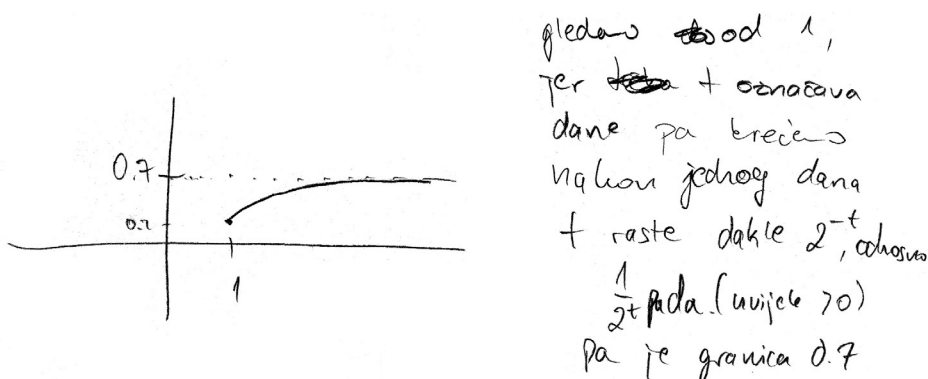 gledamo od 1,
jer t označava
dane pa krećemo
nakon jednog dana
t raste dakle 2^-t, odnosno
1/2^t pada. (uvijek >0)
pa je granica 0.7
0.7
0.2
1